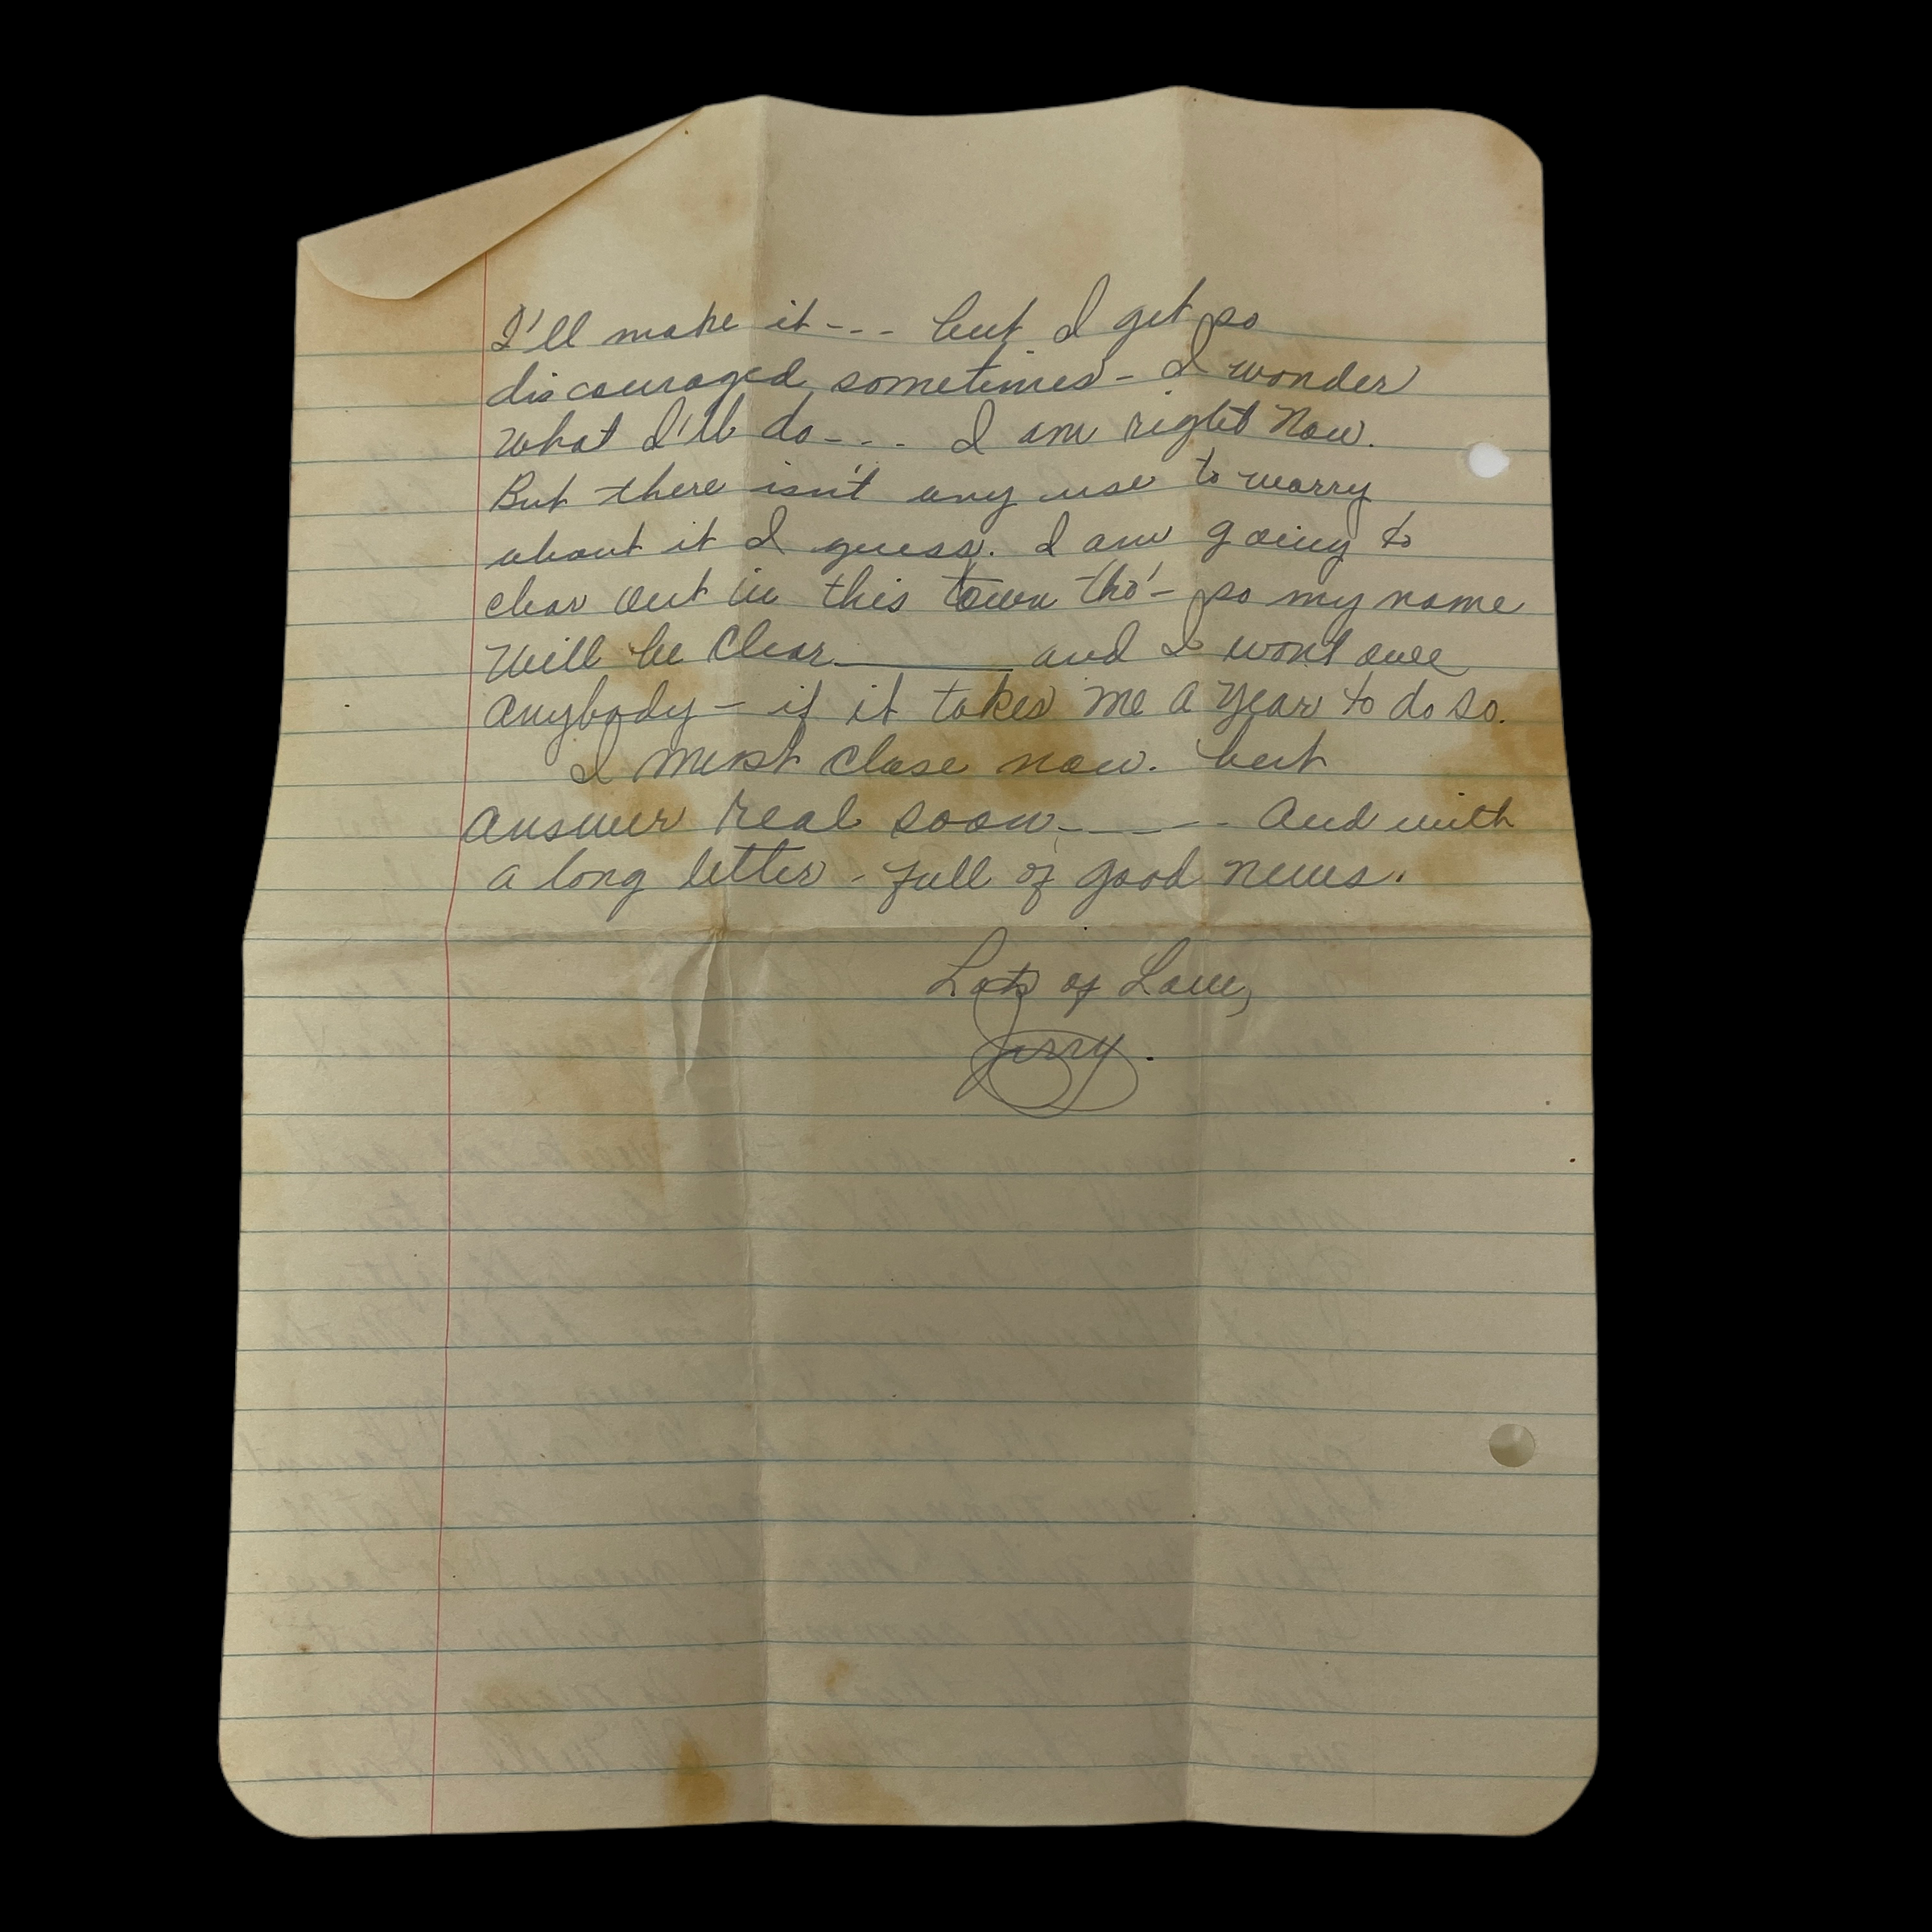 I'll make it --- but I get so
discouraged sometimes - I wonder
What I'll do --- I am right Now.
But there isn't any use to worry
about it I guess. I am going to
clear out in this town tho' - so my name
Will be Clear ______ and I wont owe
Anybody - if it takes me a year to do so.
I must close now. but
answer real soon ---- And with
a long letter - full of good news.
Lots of Love,
Jerry.